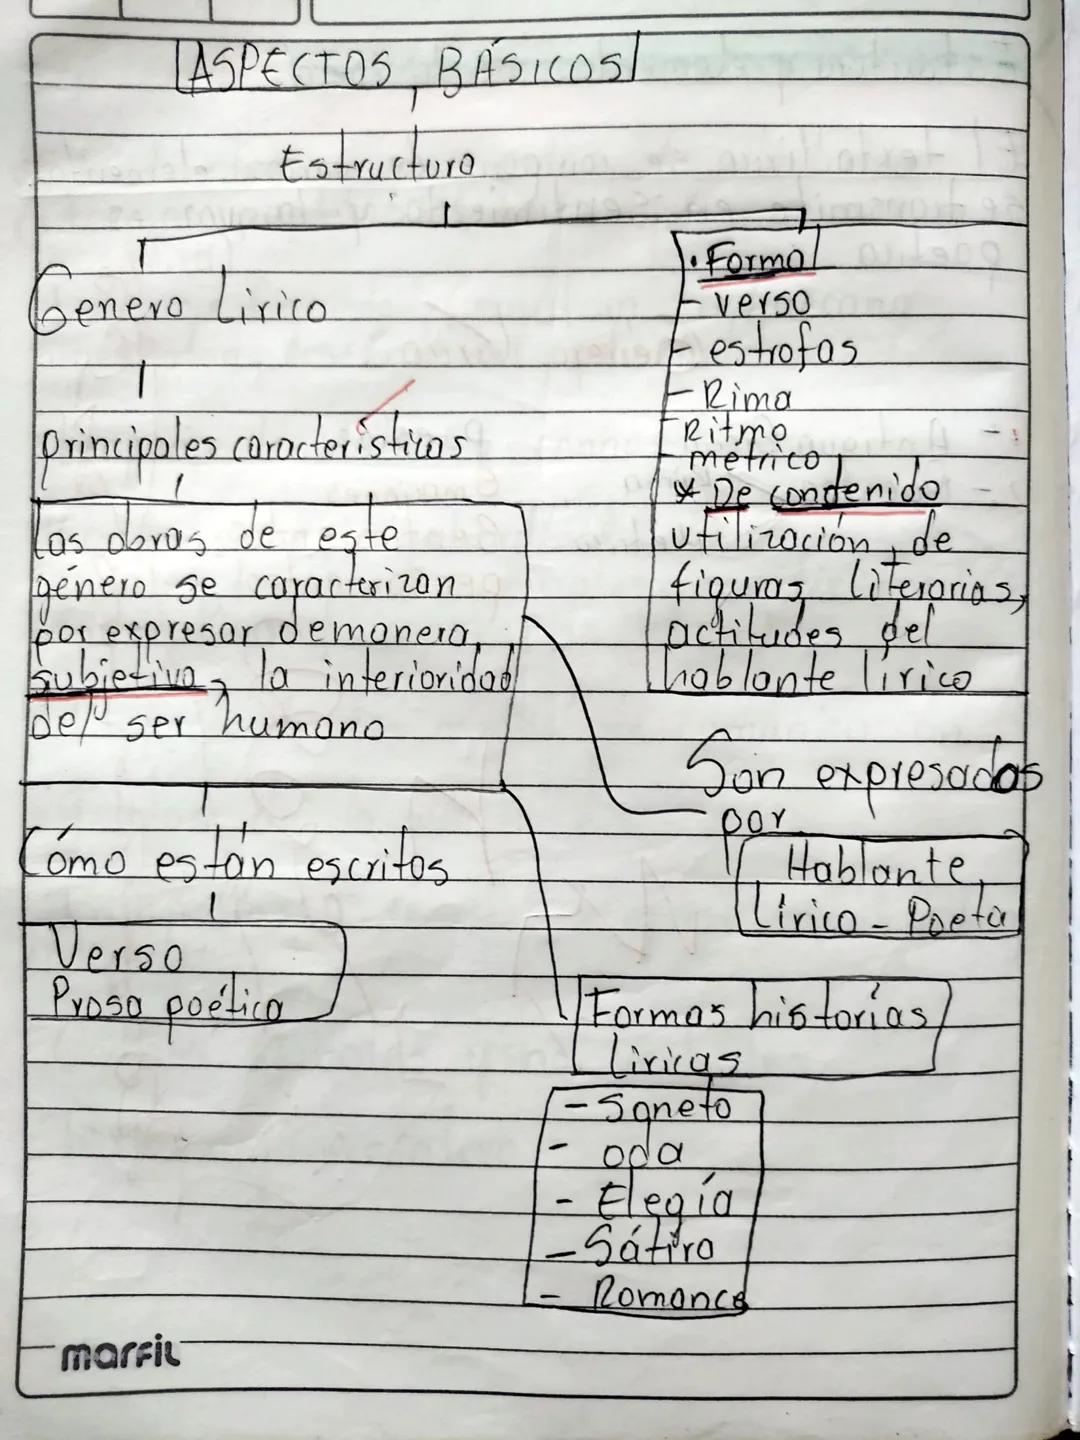 ASPECTOS BÁSICOS
Estructura
Genero Lirico
principales caracteristicas
Las obras de este
género se caracterizan
por expresar demanera
subjetiva, la interioridad
del ser humano
Cómo están escritos
Verso
Prosa poética
• Forma
- verso
- estrofas
- Rima
- Ritmo
- métrica
* De contenido
utilización de
figuras literarias,
actitudes del
hablante lírico
Son expresados
por
Hablante
Lírico - Poeta
Formas historias
Liricas
- Soneto
- oda
- Elegía
- Sátira
- Romance
marfil